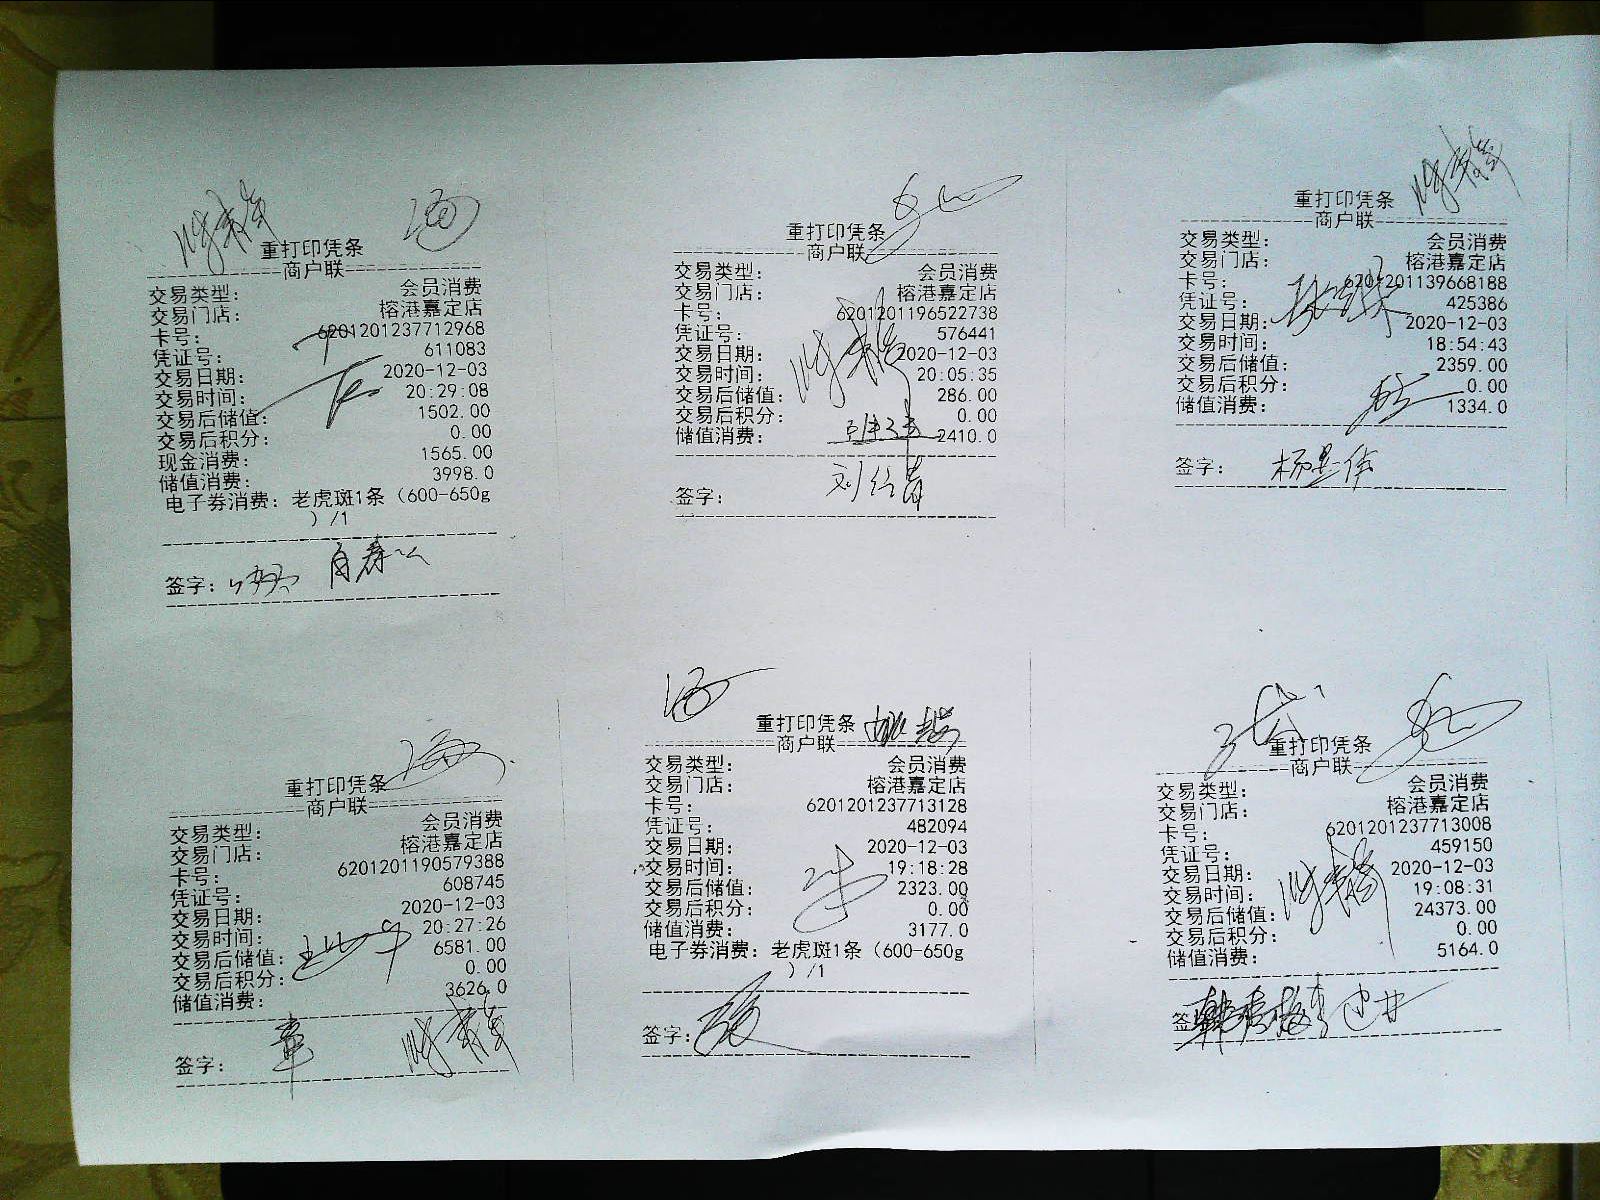 重打印凭条
商户联
交易类型: 会员消费
交易门店: 榕港嘉定店
卡号: 6201201237712968
凭证号: 611083
交易日期: 2020-12-03
交易时间: 20:29:08
交易后储值: 1502.00
交易后积分: 0.00
现金消费: 1565.00
储值消费: 3998.0
电子券消费: 老虎斑1条 (600-650g
) /1
签字:
重打印凭条
商户联
交易类型: 会员消费
交易门店: 榕港嘉定店
卡号: 6201201196522738
凭证号: 576441
交易日期: 2020-12-03
交易时间: 20:05:35
交易后储值: 286.00
交易后积分: 0.00
储值消费: 2410.0
签字:
重打印凭条
商户联
交易类型: 会员消费
交易门店: 榕港嘉定店
卡号: 6201201139668188
凭证号: 425386
交易日期: 2020-12-03
交易时间: 18:54:43
交易后储值: 2359.00
交易后积分: 0.00
储值消费: 1334.0
签字:
重打印凭条
商户联
交易类型: 会员消费
交易门店: 榕港嘉定店
卡号: 6201201190579388
凭证号: 608745
交易日期: 2020-12-03
交易时间: 20:27:26
交易后储值: 6581.00
交易后积分: 0.00
储值消费: 3626.0
签字:
重打印凭条
商户联
交易类型: 会员消费
交易门店: 榕港嘉定店
卡号: 6201201237713128
凭证号: 482094
交易日期: 2020-12-03
交易时间: 19:18:28
交易后储值: 2323.00
交易后积分: 0.00
储值消费: 3177.0
电子券消费: 老虎斑1条 (600-650g
) /1
签字:
重打印凭条
商户联
交易类型: 会员消费
交易门店: 榕港嘉定店
卡号: 6201201237713008
凭证号: 459150
交易日期: 2020-12-03
交易时间: 19:08:31
交易后储值: 24373.00
交易后积分: 0.00
储值消费: 5164.0